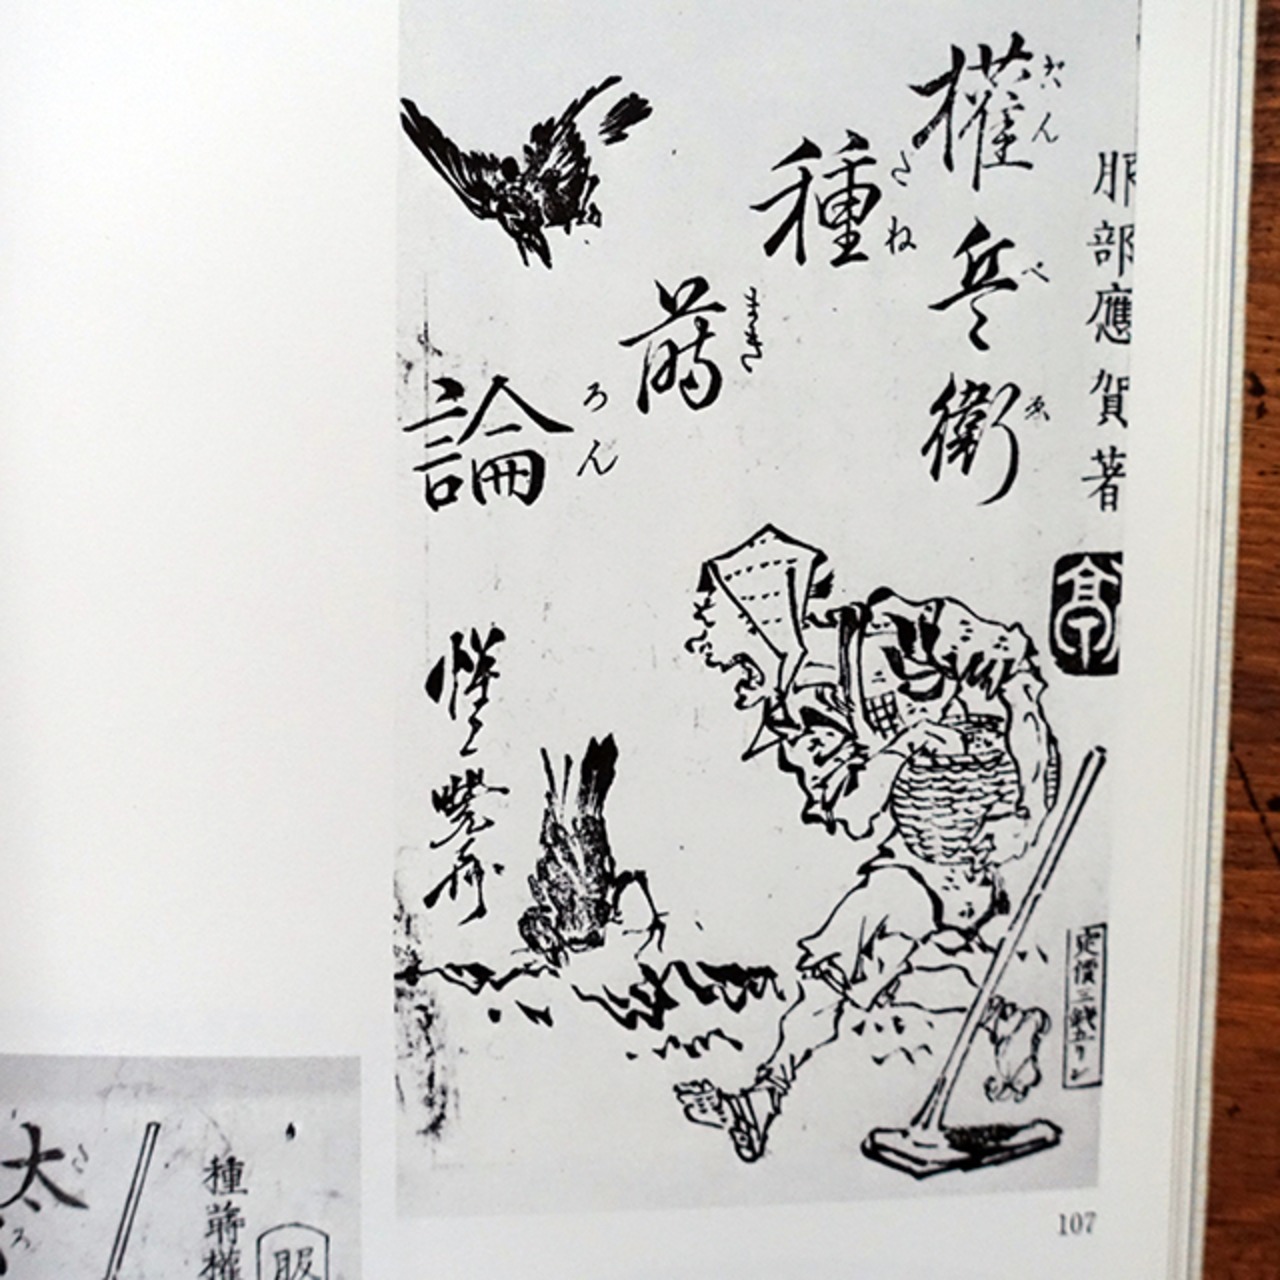 服部應賀著
權兵衛
ごんべゑ
種
たね
蒔
まき
論
ろん
惺々暁斎
定價三銭五リン
107
太
種蒔權
服